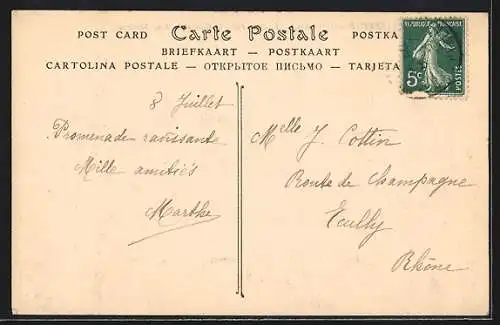 POST CARD Carte Postale POSTKA
BRIEFKAART — POSTKAART
CARTOLINA POSTALE — ОТКРЫТОЕ ПИСЬМО — TARJETA
REPUBLIQUE FRANÇAISE
5c
POSTES
8 Juillet
Promenade ravissante
Mille amitiés
Marthe
Melle J. Cottin
Route de Champagne
Ecully
Rhône